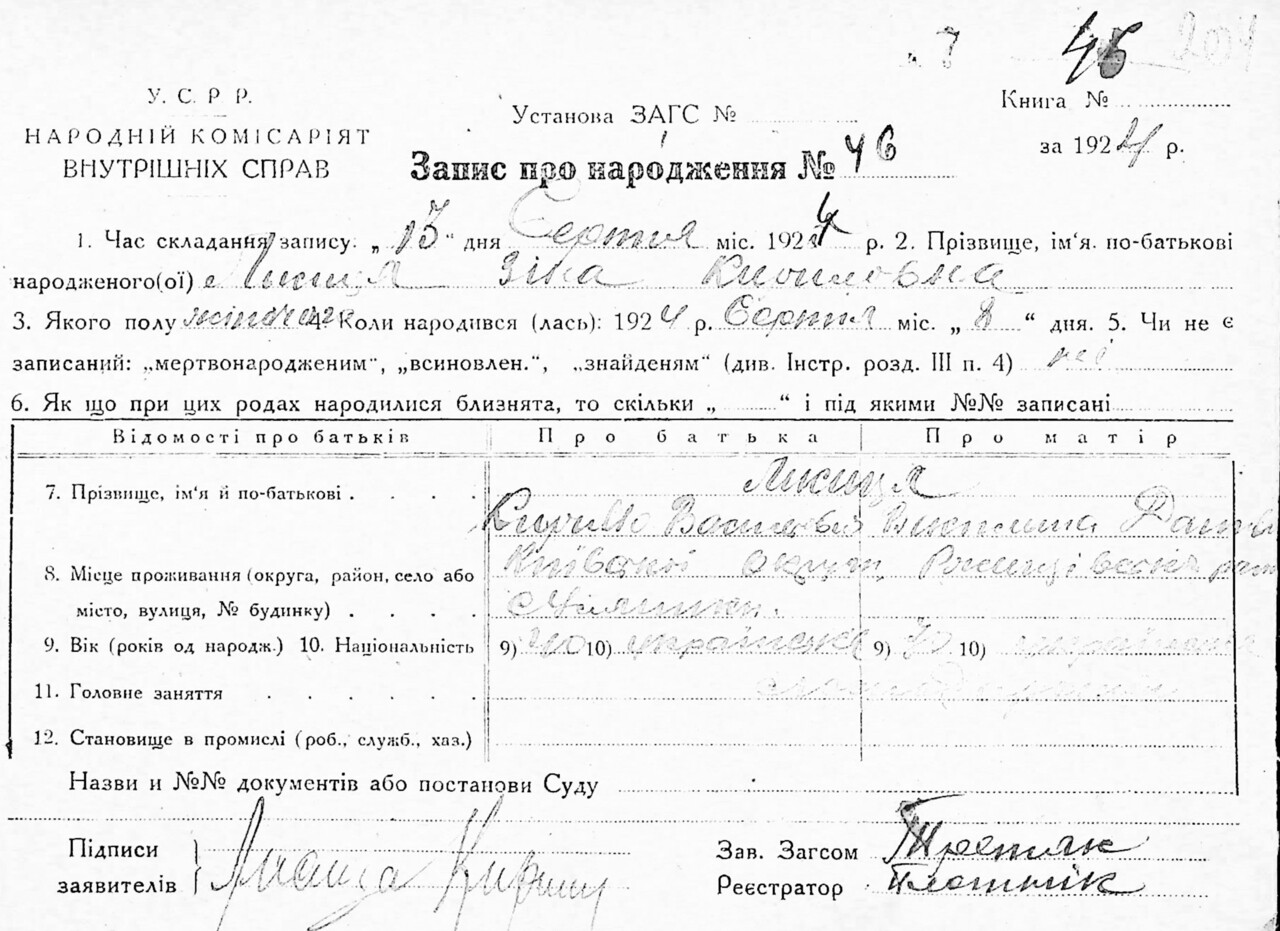 46
У. С. Р. Р.
НАРОДНІЙ КОМІСАРІЯТ
ВНУТРІШНІХ СПРАВ
Установа ЗАГС №
Книга №
за 1924 р.
Запис про народження № 46
1. Час складання запису. „13" дня Серпня міс. 1924 р. 2. Прізвище, ім'я. по-батькові
народженого(ої) Лисиця Зіна Кириловна
3. Якого полу жіноче 4. Коли народився (лась): 1924 р. Серпня міс. „8" дня. 5. Чи не є
записаний: „мертвонародженим", „всиновлен.", „знайденям" (див. Інстр. розд. III п. 4) ні
6. Як що при цих родах народилися близнята, то скільки „ " і під якими №№ записані
Відомості про батьків Про батька Про матір
7. Прізвище, ім'я й по-батькові . . . . Лисиця
Кирило
8. Місце проживання (округа, район, село або Київської округи
місто, вулиця, № будинку) . . . .
9. Вік (років од народж.) 10. Національність 9) 40 10) українська 9) 10) українська
11. Головне заняття . . . . .
12. Становище в промислі (роб., служб., хаз.)
Назви и №№ документів або постанови Суду
Підписи
заявителів Лисица Кирилл
Зав. Загсом Третяк
Реєстратор Плотнік